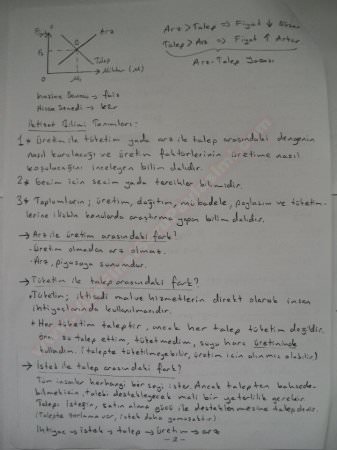 Fiyat
Arz
Talep
Miktar (M)
Arz > Talep ⇒ Fiyat ↓ Düşer
Talep > Arz ⇒ Fiyat ↑ Artar
Arz-Talep Yasası
Hazine Bonosu → faiz
Hisse Senedi →
İktisat Bilimi Tanımları:
1* Üretim ile tüketim yada arz ile talep arasındaki dengenin
nasıl kurulacağı ve üretim faktörlerinin üretime nasıl
koşulacağını inceleyen bilim dalıdır.
2* Seçim için seçim yada tercihler bilimidir.
3* Toplumların; üretim, dağıtım, mübadele, paylaşım ve tüketim-
lerine ilişkin konularda araştırma yapan bilim dalıdır.
→ Arz ile üretim arasındaki fark?
- Üretim olmadan arz olmaz.
- Arz, piyasaya sunumdur.
→ Tüketim ile talep arasındaki fark?
- Tüketim; iktisadi mal ve hizmetlerin direkt olarak insan
ihtiyaçlarında kullanılmasıdır.
* Her tüketim taleptir, ancak her talep tüketim değildir.
örn: su talep ettim, tüketmedim, suyu harç üretiminde
kullandım. (talepte tüketilmeyebilir, üretim için alınmış olabilir)
→ İstek ile talep arasındaki fark?
Tüm insanlar herhangi bir şeyi ister. Ancak talepten bahsede-
bilmek için, talebi destekleyecek mali bir yeterlilik gerekir.
Talep: İsteğin, satın alma gücü ile desteklenmesine talep denir.
(Talepte zorlama var, istek daha yumuşaktır)
İhtiyaç → istek → talep → üretim → arz
- 2 -